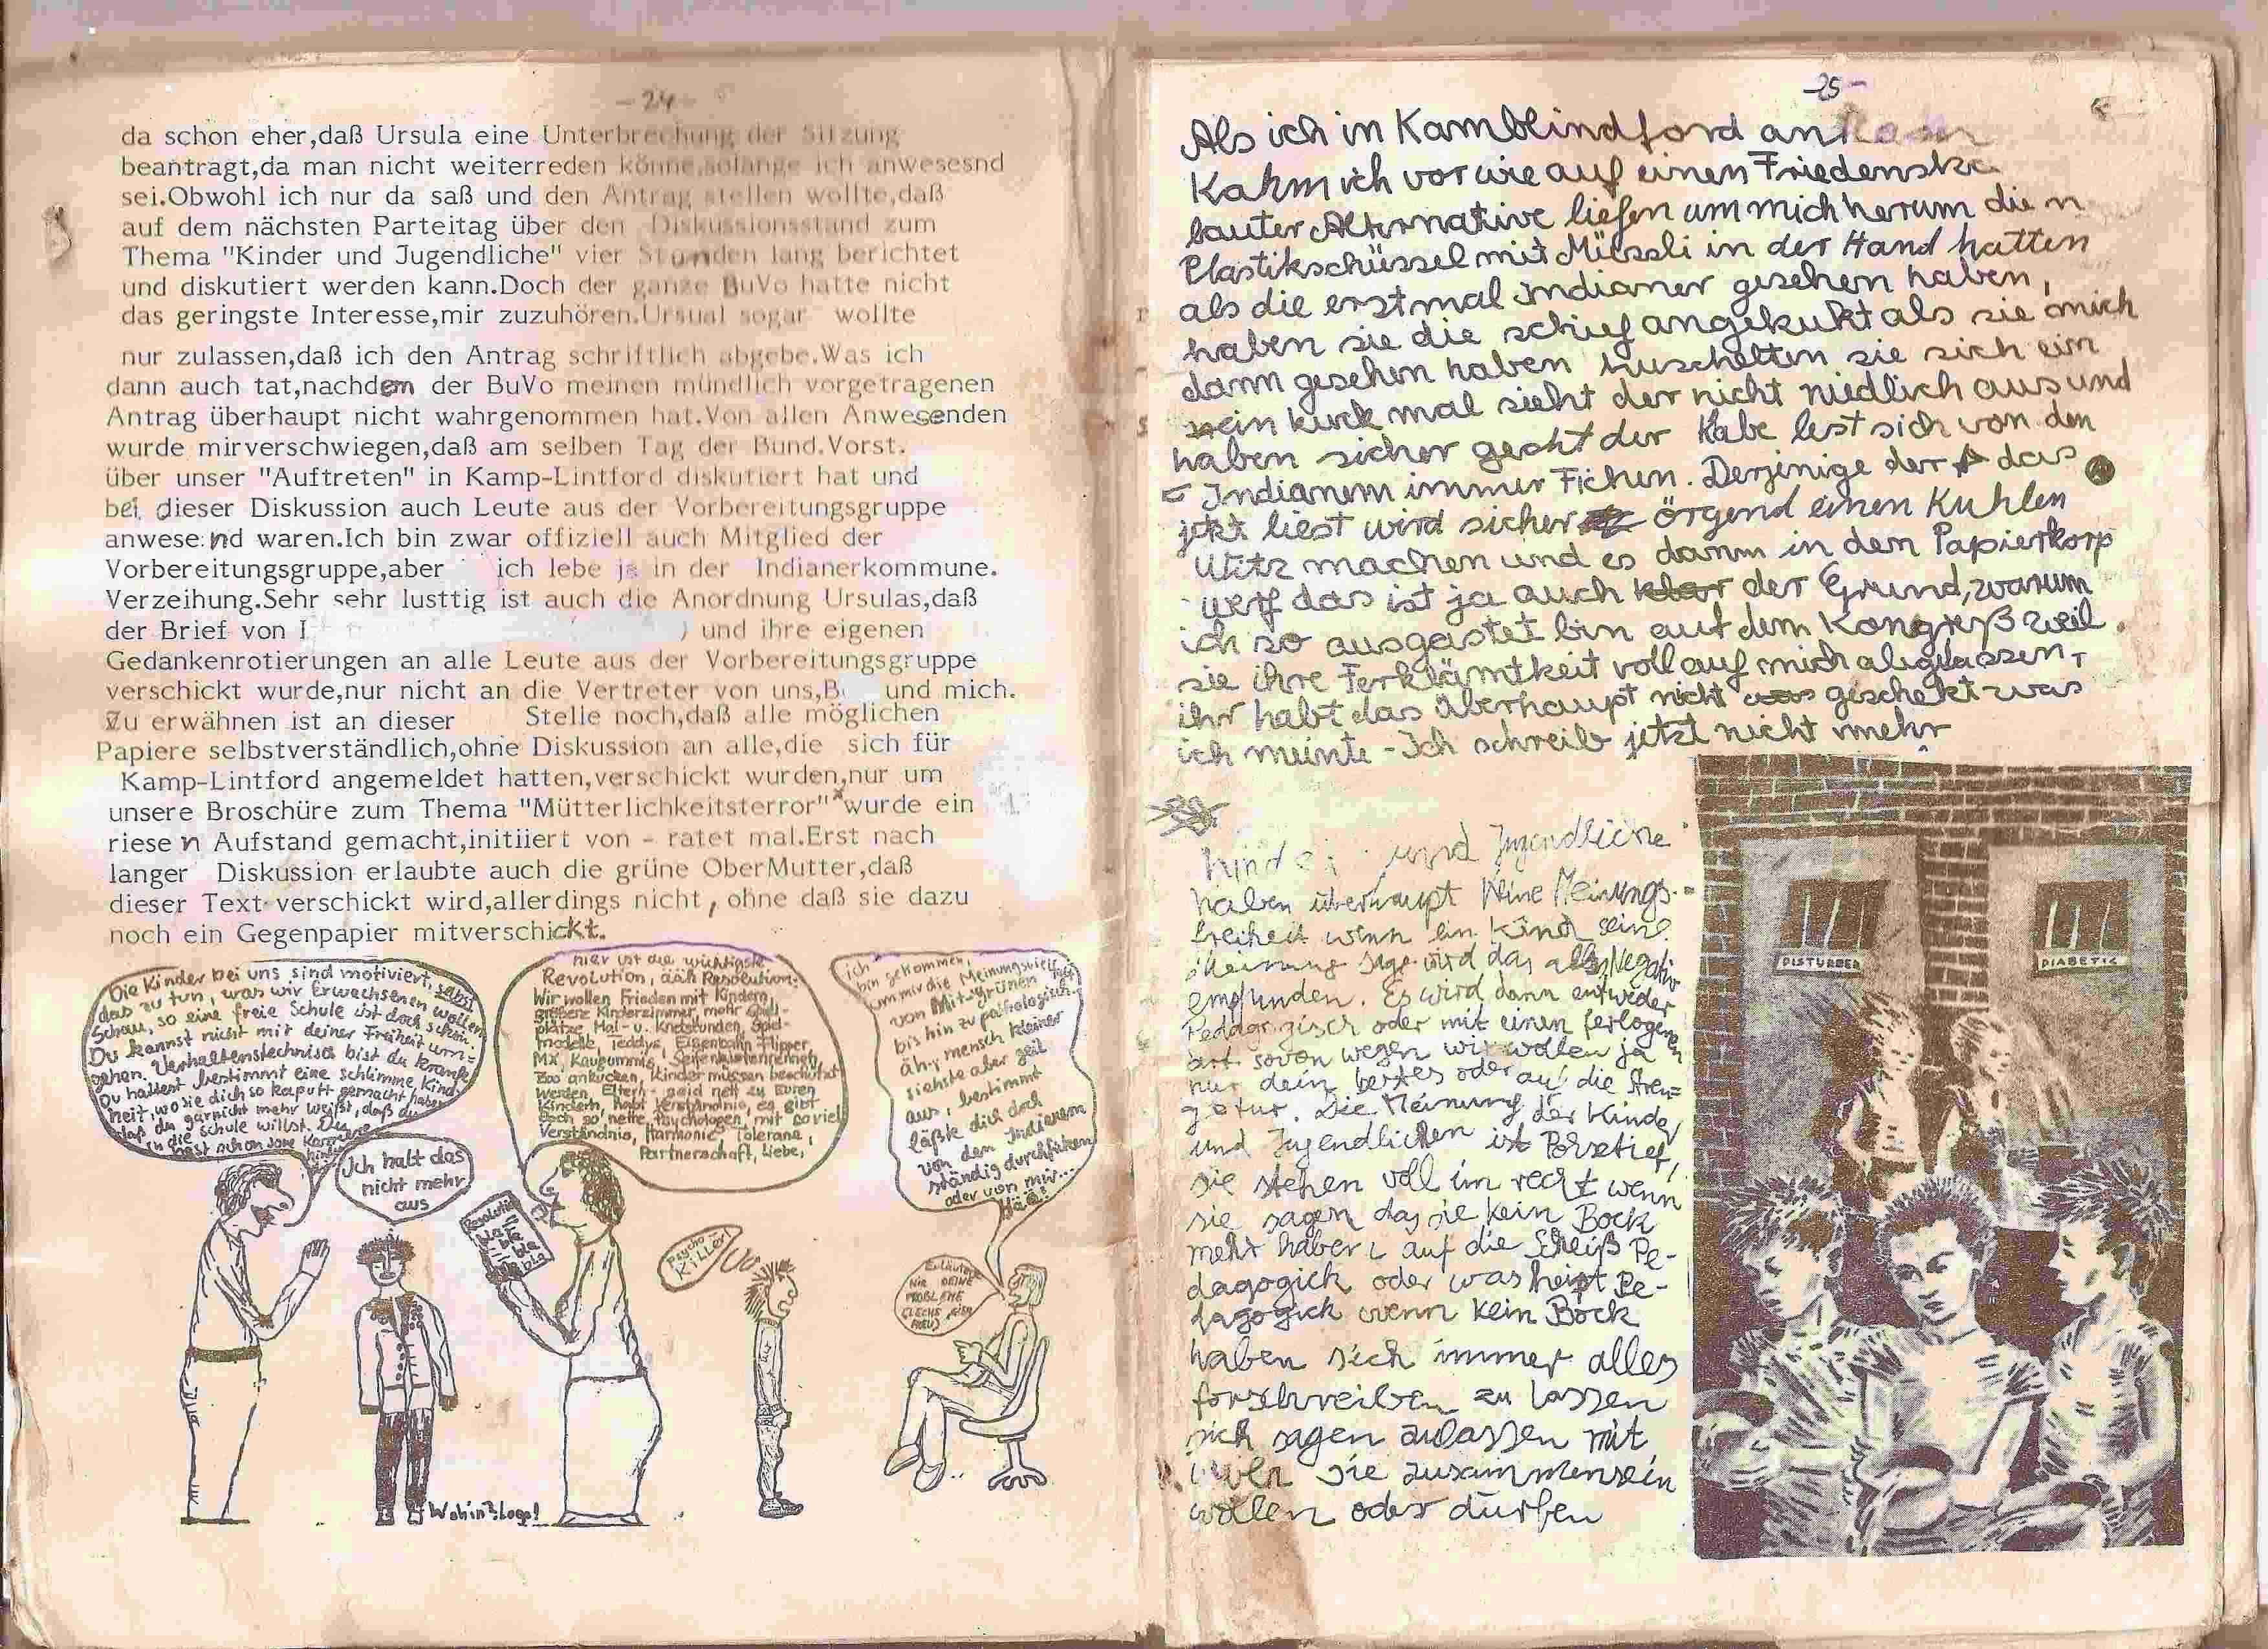 - 24 -
da schon eher,daß Ursula eine Unterbrechung der Sitzung
beantragt,da man nicht weiterreden könne,solange ich anwesesnd
sei.Obwohl ich nur da saß und den Antrag stellen wollte,daß
auf dem nächsten Parteitag über den Diskussionsstand zum
Thema "Kinder und Jugendliche" vier Stunden lang berichtet
und diskutiert werden kann.Doch der ganze BuVo hatte nicht
das geringste Interesse,mir zuzuhören.Ursual sogar wollte
nur zulassen,daß ich den Antrag schriftlich abgebe.Was ich
dann auch tat,nachdem der BuVo meinen mündlich vorgetragenen
Antrag überhaupt nicht wahrgenommen hat.Von allen Anwesenden
wurde mirverschwiegen,daß am selben Tag der Bund.Vorst.
über unser "Auftreten" in Kamp-Lintford diskutiert hat und
bei dieser Diskussion auch Leute aus der Vorbereitungsgruppe
anwesend waren.Ich bin zwar offiziell auch Mitglied der
Vorbereitungsgruppe,aber ich lebe ja in der Indianerkommune.
Verzeihung.Sehr sehr lusttig ist auch die Anordnung Ursulas,daß
der Brief von I ) und ihre eigenen
Gedankenrotierungen an alle Leute aus der Vorbereitungsgruppe
verschickt wurde,nur nicht an die Vertreter von uns,B und mich.
Zu erwähnen ist an dieser Stelle noch,daß alle möglichen
Papiere selbstverständlich,ohne Diskussion an alle,die sich für
Kamp-Lintford angemeldet hatten,verschickt wurden,nur um
unsere Broschüre zum Thema "Mütterlichkeitsterror"*wurde ein
riesen Aufstand gemacht,initiiert von - ratet mal.Erst nach
langer Diskussion erlaubte auch die grüne OberMutter,daß
dieser Text verschickt wird,allerdings nicht, ohne daß sie dazu
noch ein Gegenpapier mitverschickt.
Die Kinder bei uns sind motiviert, selbst
das zu tun, was wir Erwachsenen wollen
Schau, so eine freie Schule ist doch schön.
Du kannst nicht mit deiner Freiheit um=
gehen. Verhaltenstechnisch bist du krank
Du hattest bestimmt eine schlimme Kind
heit, wo sie dich so kaputt gemacht haben
daß du garnicht mehr weißt, daß du
in die Schule willst. Du
hast schon
Ich halt das
nicht mehr
aus
hier ist die wichtigste
Revolution, ääh Resolution:
Wir wollen Frieden mit Kindern,
größere Kinderzimmer, mehr Spiel-
plätze, Mal- u. Knetstunden, Spiel-
modelle, Teddys, Eisenbahn, Flipper,
Kaugummis, Seifenkistenrennen,
Zoo ankucken, Kinder müssen beschützt
werden, Eltern - seid nett zu Euren
Kindern, habt Verständnis, es gibt
doch so nette Psychologen, mit soviel
Verständnis, Harmonie, Tolerane,
Partnerschaft, Liebe,
Resolution
bla bla
bla bla
bla bla
ich
bin gekommen,
um mir die Meinungsvielfalt
von Mit-grünen
bis hin zu pathologisch.
äh, mensch kleiner
siehste aber geil
aus, bestimmt
läßte dich doch
von den Indianern
ständig durchficken
oder von mir...
Hää!
Psycho-
KILLER
Erläutere
MIR DEINE
PROBLEME
Wohin? Logo!
-25-
Als ich in Kamblindford ankam
Kahm ich vor wie auf einen
lauter Alternative liefen um mich herum die
Plastikschüssel mit Müessli in der Hand hatten
als die erstmal Indianer gesehen haben,
haben sie die schief angekukt als sie mich
dann gesehen haben huschelten sie sich ein
ein kuck mal sieht der nicht niedlich aus und
haben sicher gedacht der Kabe lest sich von den
Indianern immer Fichen. Derjinige der das
jetzt liest wird sicher örgend einen Kuhlen
Witz machen und es damm in dem Papierkorp
werf das ist ja auch der Grund, warum
ich so ausgeastet bin auf dem Kongreß weil
sie ihre Ferklämtkeit voll auf mich abgelassen,
ihr habt das überhaupt nicht gischekt was
ich meinte - Ich schreib jetzt nicht mehr
Kinder und Jugendliche
haben überhaupt keine Meinungs-
freiheit wenn ein Kind seine
Meinung sagt wird das als Negativ
empfunden. Es wird dann entwider
Pedagogisch oder mit einen ferlogenen
art sovon wegen wir wollen ja
nur dein bestes oder auf die Stren=
ge tur. Die Meinung der Kinder
und Jugendlichen ist Posetief,
sie stehen voll im recht wenn
sie sagen das sie kein Bock
mehr haben auf die Scheiß Pe-
dagogick oder was heist Pe-
dagogick wenn kein Bock
haben sich immer alles
forschreiben zu lassen
sich sagen zulassen mit
wen sie zusammensein
wollen oder dürfen
DISTURBED
DIABETIC